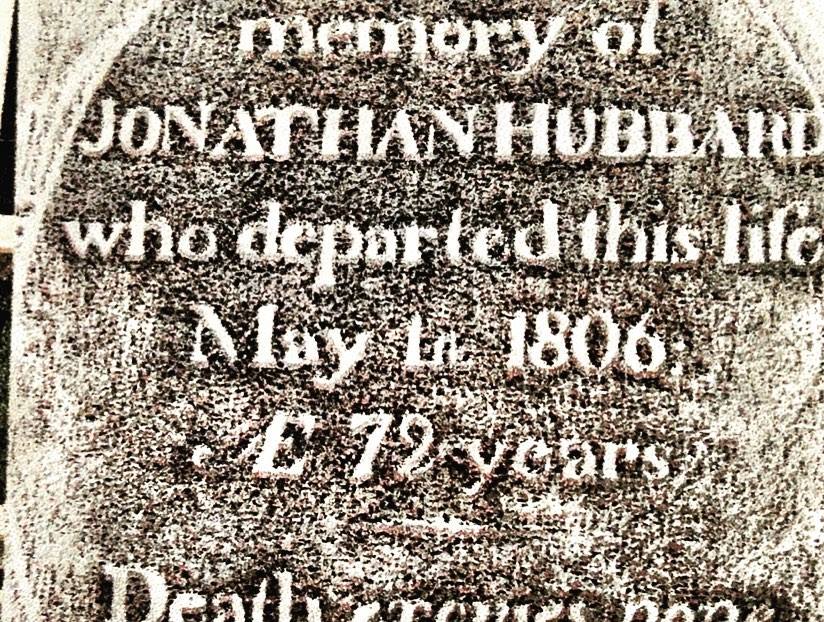 memory of
JONATHAN HUBBARD
who departed this life
May 1806;
Æ 72 years
Death excuses none